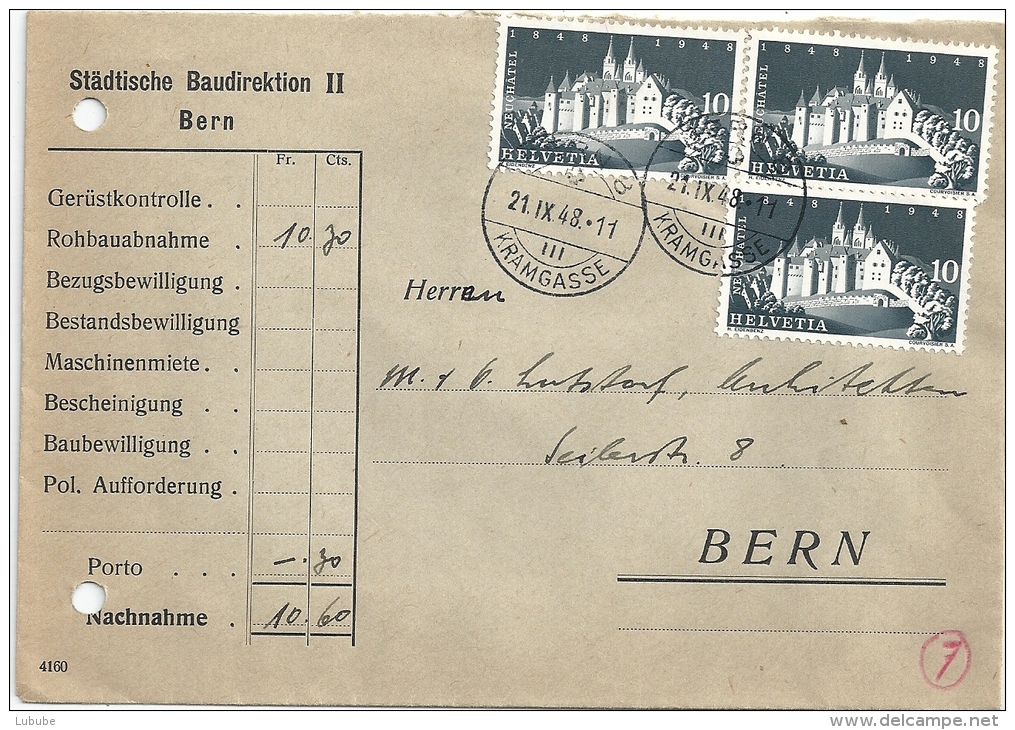 Städtische Baudirektion II
Bern
Fr. Cts.
Gerüstkontrolle . .
Rohbauabnahme . 10.30
Bezugsbewilligung
Bestandsbewilligung
Maschinenmiete . .
Bescheinigung . .
Baubewilligung . .
Pol. Aufforderung .
Porto . . . –.30
Nachnahme . 10.60
4160
1848 1948
NEUCHÂTEL
10
HELVETIA
H. EIDENBENZ COURVOISIER S.A.
1848 1948
NEUCHÂTEL
10
HELVETIA
H. EIDENBENZ COURVOISIER S.A.
1848 1948
NEUCHÂTEL
10
HELVETIA
H. EIDENBENZ COURVOISIER S.A.
21.IX.48.-11
III
KRAMGASSE
21.IX.48.-11
III
KRAMGASSE
Herren
M. & O. Lutstorf, Architekten
Seilerstr. 8
BERN
7
Lubube
www.delcampe.net